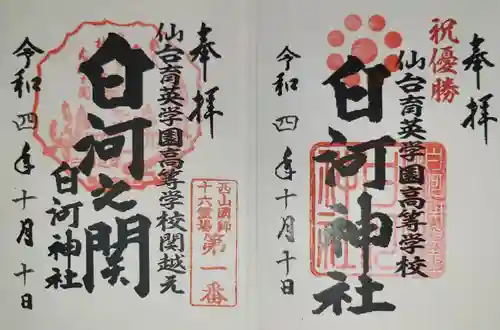 奉拝
祝優勝
仙台育英学園高等学校
白河神社
令和四年十月十日
奉拝
仙台育英学園高等学校関越え
白河之関
白河神社
西山國師
十六霊場第一番
令和四年十月十日